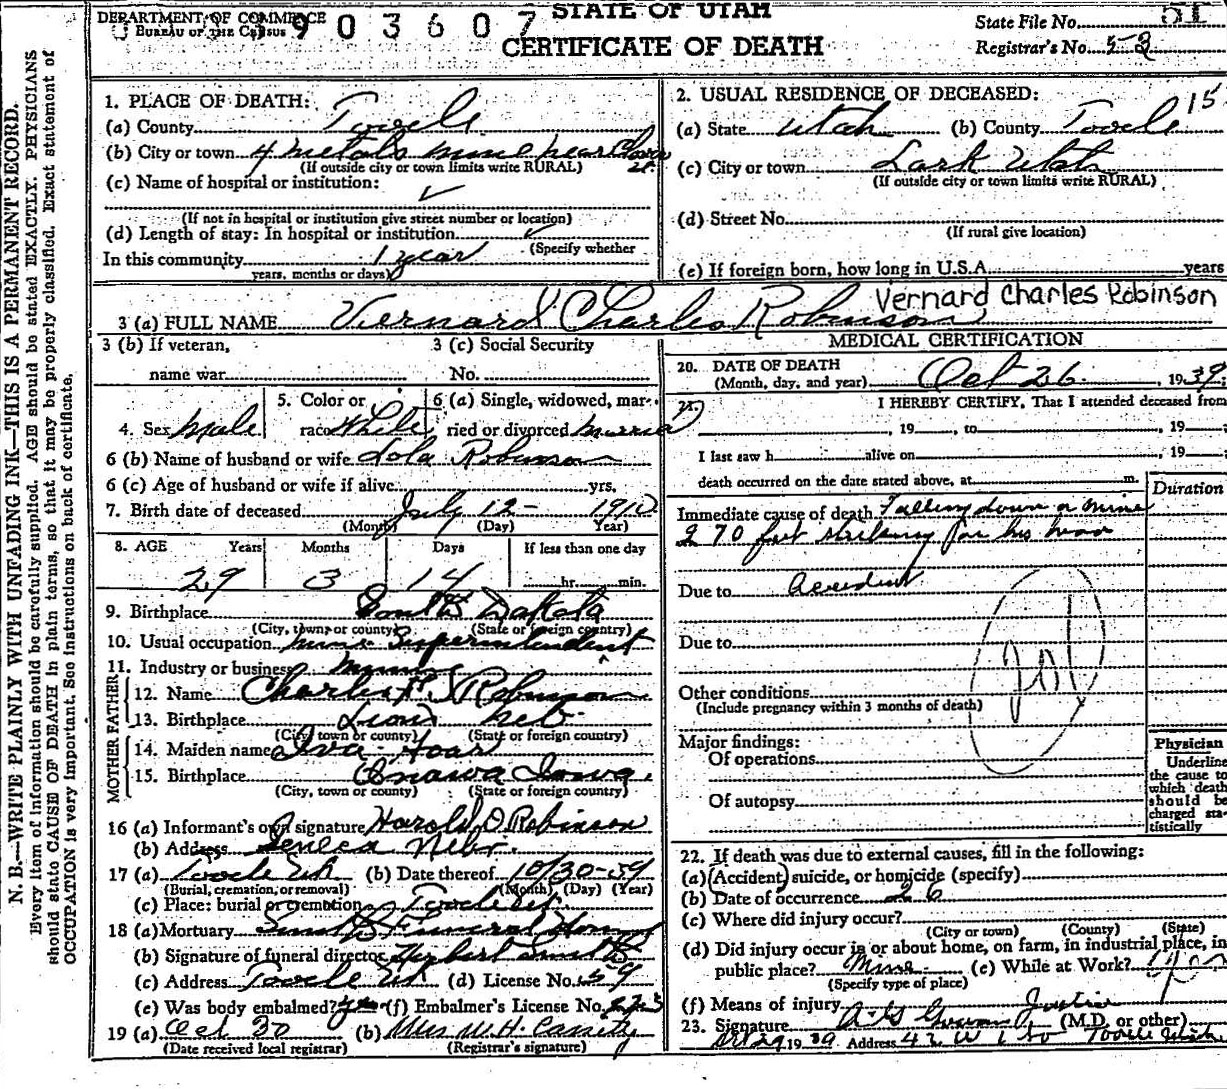 DEPARTMENT OF COMMERCE
BUREAU OF THE CENSUS
903607
STATE OF UTAH
CERTIFICATE OF DEATH
State File No. 51
Registrar's No. 53
N. B.—WRITE PLAINLY WITH UNFADING INK—THIS IS A PERMANENT RECORD.
Every item of information should be carefully supplied. AGE should be stated EXACTLY. PHYSICIANS
should state CAUSE OF DEATH in plain terms, so that it may be properly classified. Exact statement of
OCCUPATION is very important. See instructions on back of certificate.
1. PLACE OF DEATH:
(a) County Tooele
(b) City or town 4 metals mine near Clover
(If outside city or town limits write RURAL)
(c) Name of hospital or institution:
✓
(If not in hospital or institution give street number or location)
(d) Length of stay: In hospital or institution ✓
(Specify whether
In this community 1 year
years, months or days)
2. USUAL RESIDENCE OF DECEASED: 15
(a) State Utah (b) County Tooele
(c) City or town Lark Utah
(If outside city or town limits write RURAL)
(d) Street No.
(If rural give location)
(e) If foreign born, how long in U.S.A. years
3 (a) FULL NAME Vernard Charles Robinson Vernard Charles Robinson
3 (b) If veteran, 3 (c) Social Security
name war No.
4. Sex Male 5. Color or race White 6 (a) Single, widowed, married or divorced Married
6 (b) Name of husband or wife Lola Robinson
6 (c) Age of husband or wife if alive yrs.
7. Birth date of deceased July 12 - 1910
(Month) (Day) (Year)
8. AGE Years Months Days If less than one day
29 3 14 hr. min.
9. Birthplace South Dakota
(City, town, or county) (State or foreign country)
10. Usual occupation Mine Superintendent
11. Industry or business Mining
FATHER
12. Name Charles F. Robinson
13. Birthplace Lions Neb
(City, town or county) (State or foreign country)
MOTHER
14. Maiden name Iva Hoar
15. Birthplace Onawa Iowa.
(City, town or county) (State or foreign country)
16 (a) Informant's own signature Harold D Robinson
(b) Address Seneca Nebr.
17 (a) Tooele Ut (b) Date thereof 10/30-39
(Burial, cremation, or removal) (Month) (Day) (Year)
(c) Place: burial or cremation Tooele Ut.
18 (a) Mortuary Funeral Home
(b) Signature of funeral director
(c) Address Tooele Ut (d) License No. 59
(e) Was body embalmed? yes (f) Embalmer's License No.
19 (a) Oct 30 (b) Mrs W. H. Cassity
(Date received local registrar) (Registrar's signature)
MEDICAL CERTIFICATION
20. DATE OF DEATH
(Month, day, and year) Oct 26, 1939
21. I HEREBY CERTIFY, That I attended deceased from
, 19 , to , 19 ;
I last saw h alive on , 19 ;
death occurred on the date stated above, at m.
Duration
Immediate cause of death Falling down a mine
270 feet striking his head
Due to Accident
Due to
Other conditions
(Include pregnancy within 3 months of death)
201
Major findings:
Of operations
Of autopsy
Physician
Underline
the cause to
which death
should be
charged sta-
tistically
22. If death was due to external causes, fill in the following:
(a) (Accident) suicide, or homicide (specify)
(b) Date of occurrence 26
(c) Where did injury occur?
(City or town) (County) (State)
(d) Did injury occur in or about home, on farm, in industrial place, in
public place? Mine (e) While at Work? yes
(Specify type of place)
(f) Means of injury
23. Signature Justice (M.D. or other)
1939 Address Tooele Utah